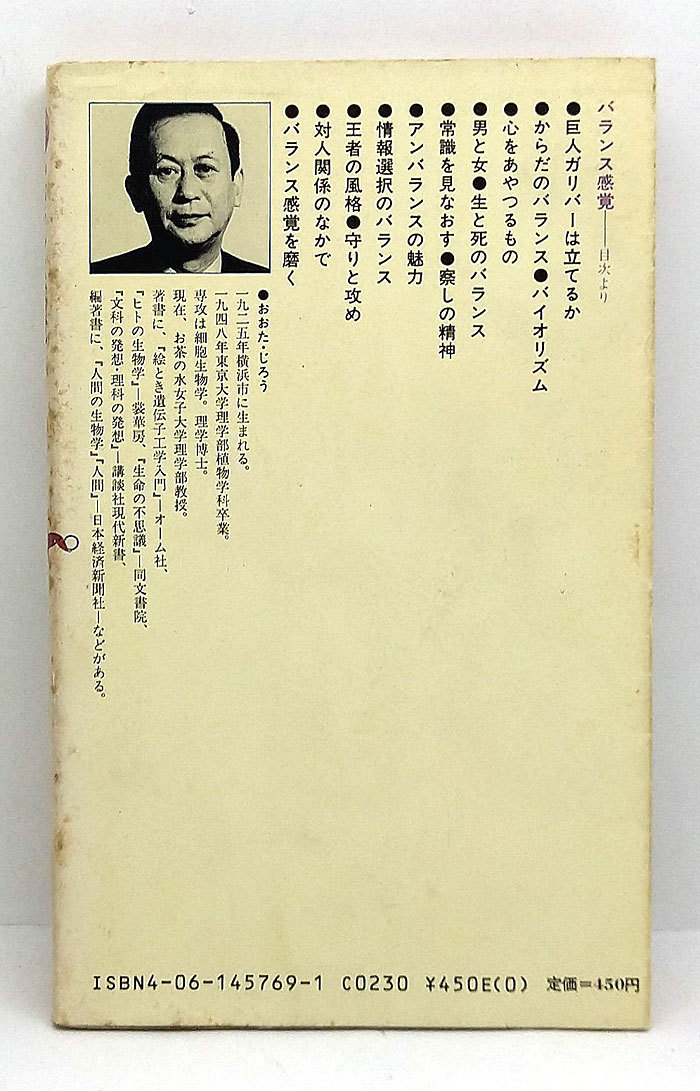 バランス感覚——目次より
●巨人ガリバーは立てるか
●からだのバランス●バイオリズム
●心をあやつるもの
●男と女●生と死のバランス
●常識を見なおす●察しの精神
●アンバランスの魅力
●情報選択のバランス
●王者の風格●守りと攻め
●対人関係のなかで
●バランス感覚を磨く
●おおた・じろう
一九二五年横浜市に生まれる。
一九四八年東京大学理学部植物学科卒業。
専攻は細胞生物学。理学博士。
現在、お茶の水女子大学理学部教授。
著書に、『絵とき遺伝子工学入門』—オーム社、
『ヒトの生物学』—裳華房、『生命の不思議』—同文書院、
『文科の発想・理科の発想』—講談社現代新書、
編著書に、『人間の生物学』『人間』—日本経済新聞社—などがある。
ISBN4-06-145769-1 C0230 ¥450E(0) 定価=450円